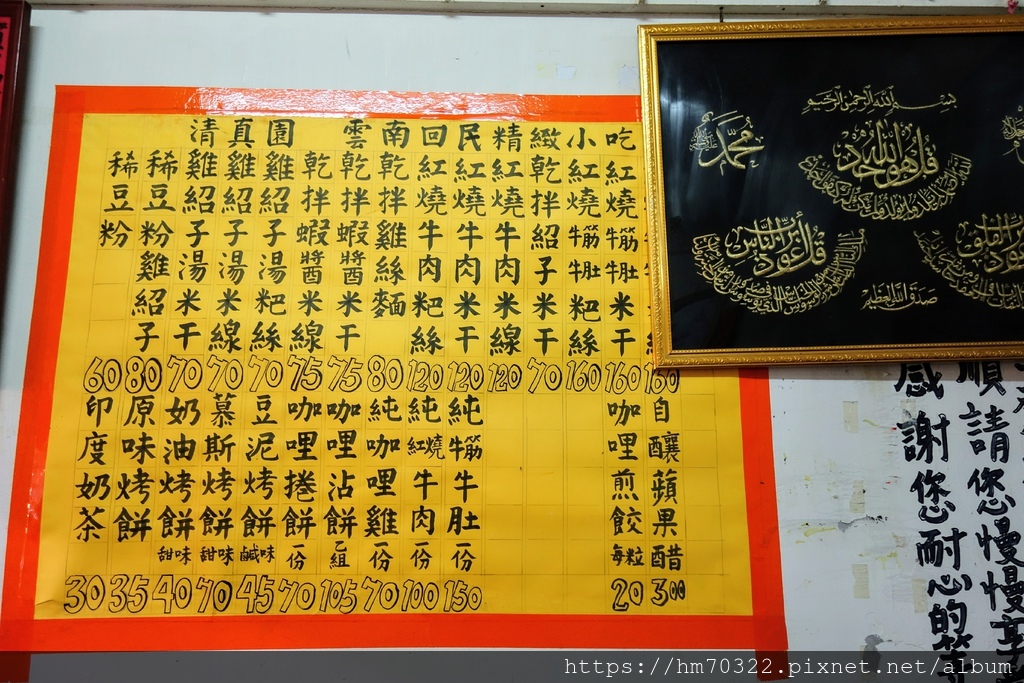 清真園 雲南回民精緻小吃
160
紅燒牛筋牛肚米干 160
紅燒牛筋牛肚粑絲 160
乾拌紹子米干 70
紅燒牛肉米線 120
紅燒牛肉米干 120
紅燒牛肉粑絲 120
乾拌雞絲麵 80
乾拌蝦醬米干 75
乾拌蝦醬米線 75
雞紹子湯粑絲 70
雞紹子湯米線 70
雞紹子湯米干 70
稀豆粉雞紹子 80
稀豆粉 60
自釀蘋果醋 300
咖哩煎餃每粒 20
純牛筋牛肚一份 150
純紅燒牛肉一份 100
純咖哩雞一份 70
咖哩沾餅乙組 105
咖哩捲餅一份 70
豆泥烤餅鹹味 45
慕斯烤餅甜味 70
奶油烤餅甜味 40
原味烤餅 35
印度奶茶 30
بسم الله الرحمن الرحيم
محمد
قل هو الله أحد
قل أعوذ برب الناس
صدق الله العظيم
順請您慢慢享
感謝您耐心的
https://hm70322.pixnet.net/album